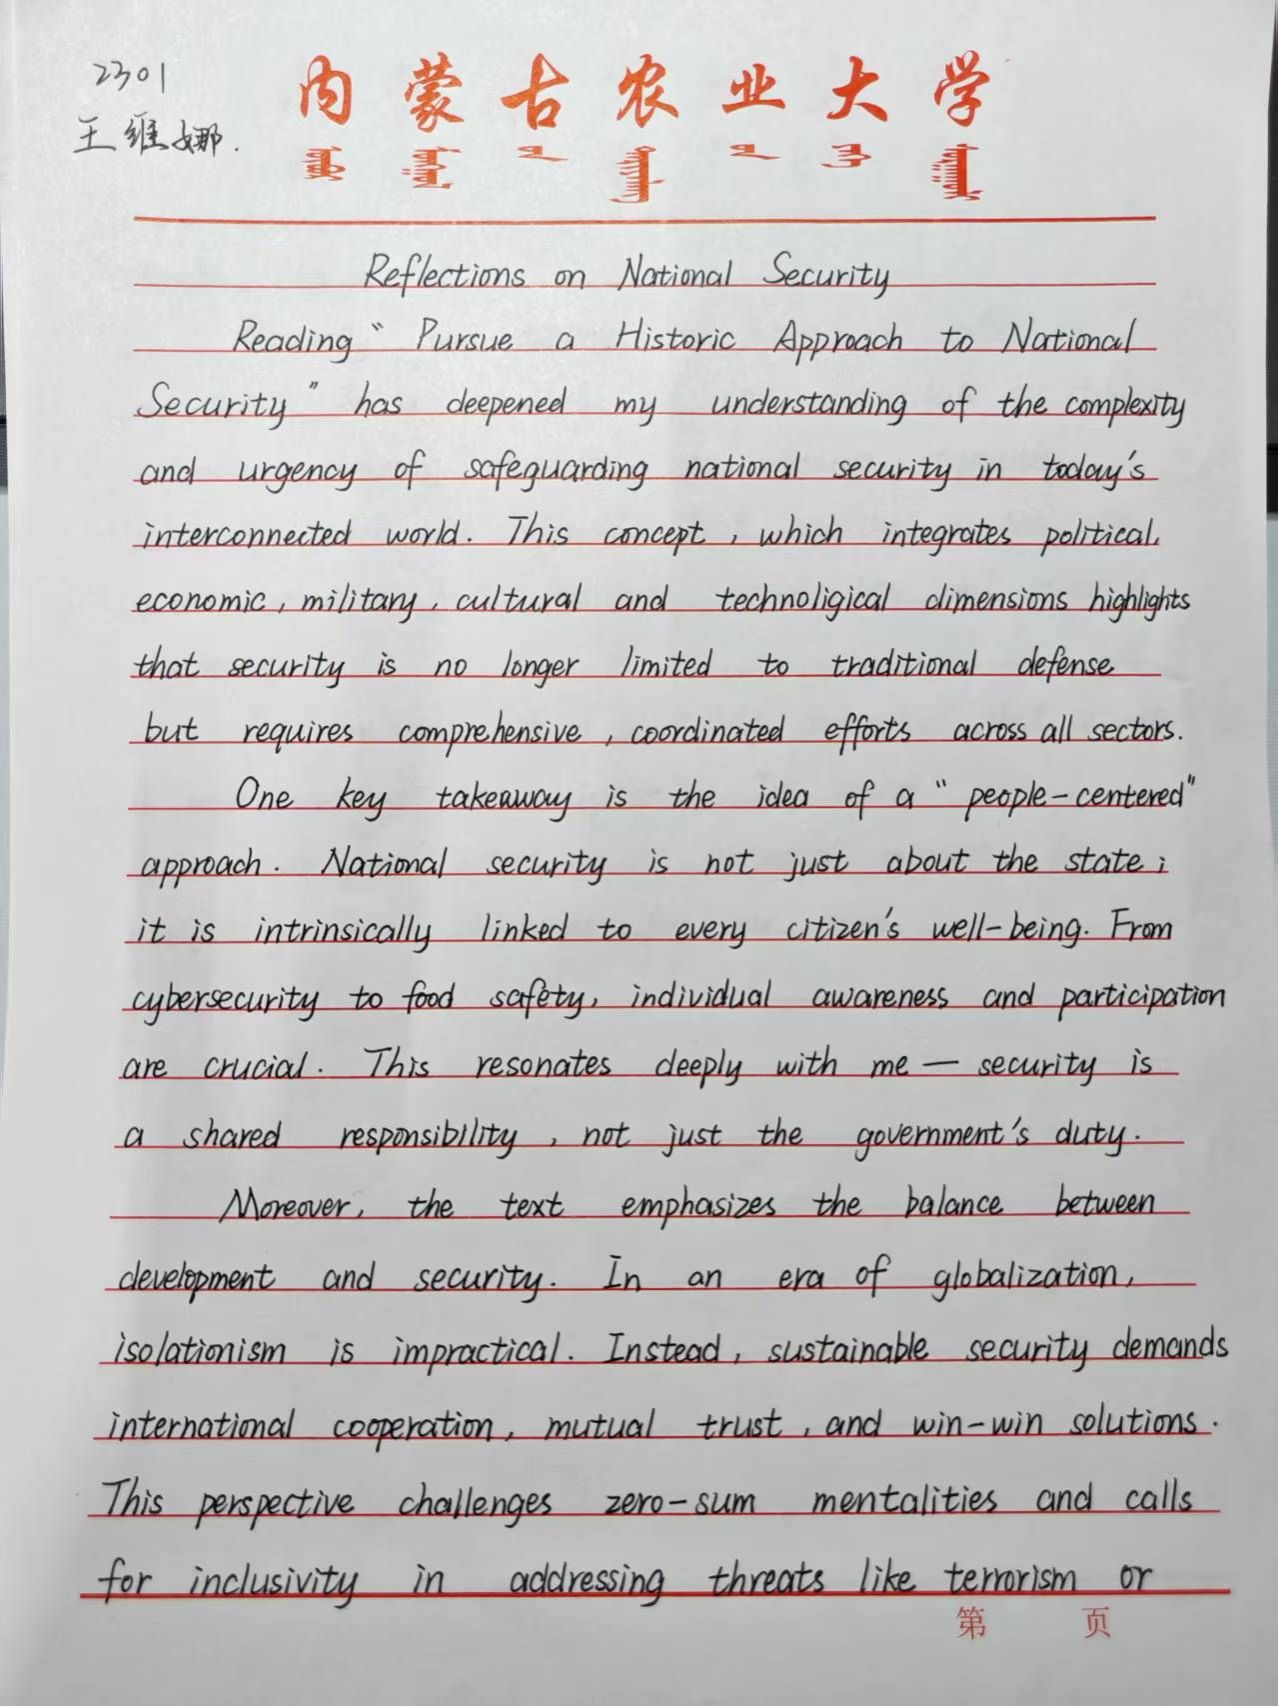 2301
王维娜.
内蒙古农业大学
Reflections on National Security
Reading “Pursue a Historic Approach to National
Security” has deepened my understanding of the complexity
and urgency of safeguarding national security in today's
interconnected world. This concept, which integrates political,
economic, military, cultural and technoligical dimensions highlights
that security is no longer limited to traditional defense
but requires comprehensive, coordinated efforts across all sectors.
One key takeaway is the idea of a “people-centered”
approach. National security is not just about the state;
it is intrinsically linked to every citizen's well-being. From
cybersecurity to food safety, individual awareness and participation
are crucial. This resonates deeply with me — security is
a shared responsibility, not just the government's duty.
Moreover, the text emphasizes the balance between
development and security. In an era of globalization,
isolationism is impractical. Instead, sustainable security demands
international cooperation, mutual trust, and win-win solutions.
This perspective challenges zero-sum mentalities and calls
for inclusivity in addressing threats like terrorism or
第 页